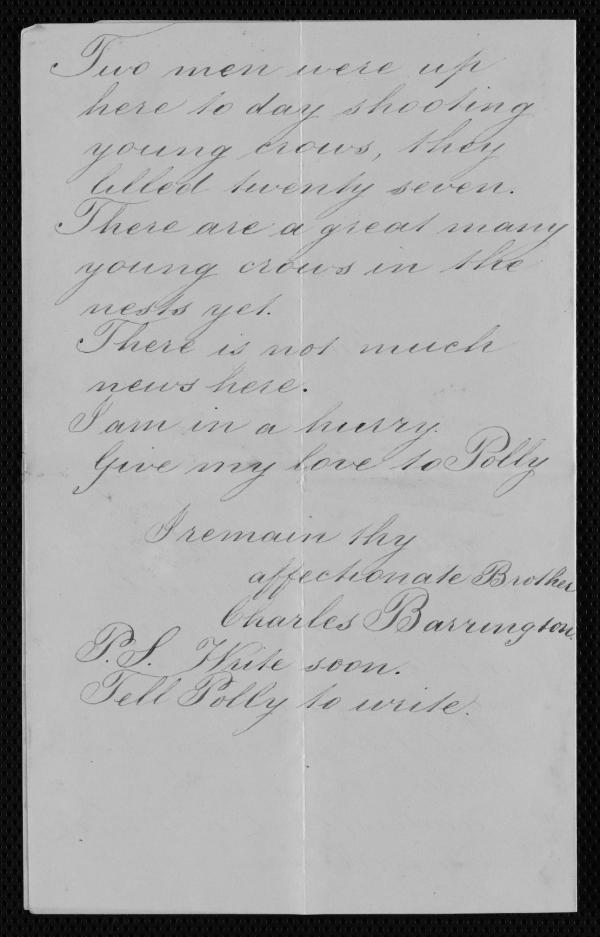 Two men were up
here to day shooting
young crows, they
killed twenty seven.
There are a great many
young crows in the
nests yet.
There is not much
news here.
I am in a hurry.
Give my love to Polly
I remain thy
affectionate Brother
Charles Barrington.
P.S. Write soon.
Tell Polly to write.